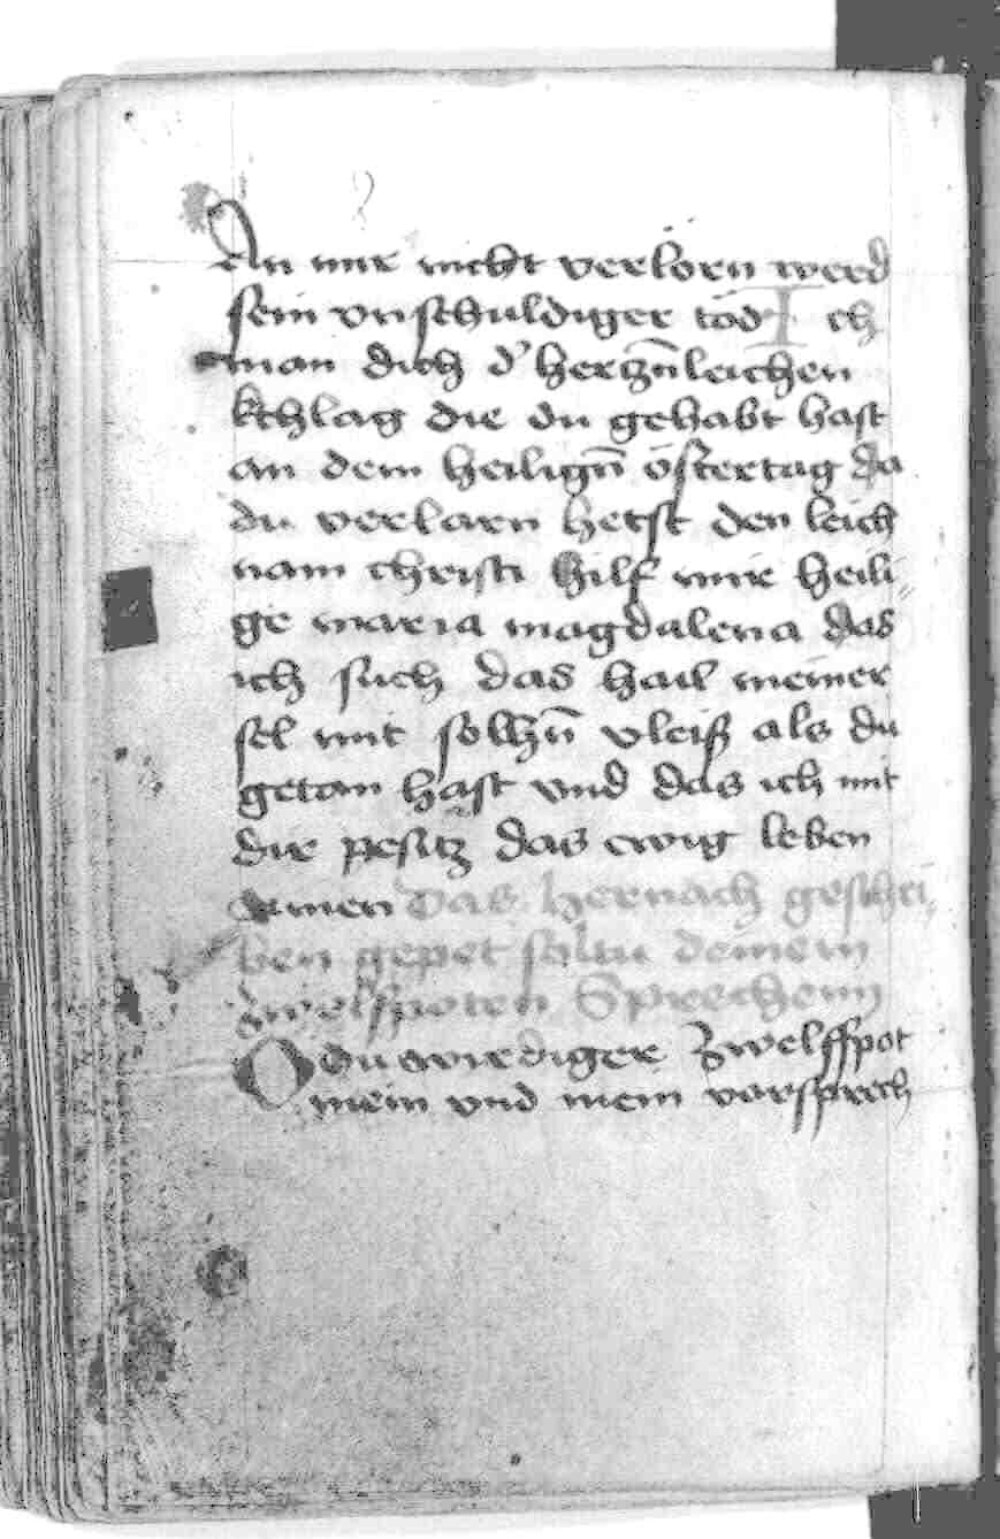 An mir nicht verlorn werd
sein vnschuldiger tod Ich
man dich d' herczn̄leichen
kchlag die du gehabt hast
an dem heilign̄ ostertag da
du verlarn hetst den leich
nam christi hilf mir heili
ge maria magdalena das
ich such das hail meiner
sel mit solhn̄ vleiß als du
getan hast vnd das ich mit
dir pesitz das ewig leben
Amen Das hernach geschri
ben gepet soltu deinem
zwelfpoten Sprechenn
O du wirdiger Zwelffpot
mein vnd mein vorsprech